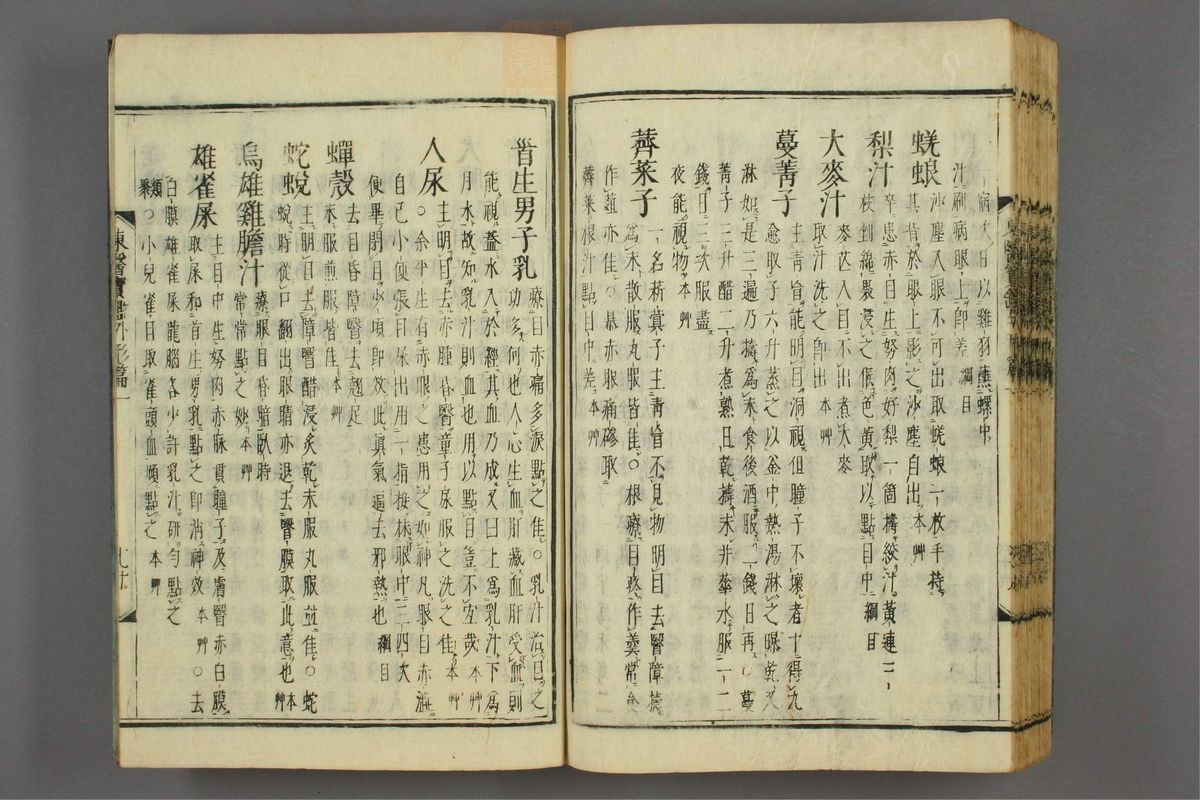 宿大日以雞羽蘸螺中
汁刷病眼上卽差 綱目
蜣蜋 沙塵入眼不可出取蜣蜋一枚手持
其背於眼上影之沙塵自出 本艸
梨汁 卒患赤目生努肉好梨一箇擣絞汁黃連三
枝剉綿裹浸之候色黃取以點目中 綱目
大麥汁 麥芒入目不出煮大麥
取汁洗之卽出 本艸
蔓菁子 主靑盲能明目洞視但瞳子不壞者十得九
愈取子六升蒸之以釜中熱湯淋之曝乾又
淋如是三遍乃擣爲末食後酒服二錢日再○蔓
菁子三升醋二升煮熟日乾擣末井華水服一二
錢日三次服盡
夜能視物 本艸
薺菜子 一名菥蓂子主靑盲不見物明目去瞖障擣
爲末散服丸服皆佳○根療目疼作羹常食
作虀亦佳○暴赤眼痛磣取
薺菜根汁點目中差 本艸
首生男子乳 療目赤痛多淚點之佳○乳汁治目之
功多何也人心生血肝藏血肝受血則
能視蓋水入於經其血乃成又曰上爲乳汁下爲
月水故知乳汁則血也用以點目豈不宜哉 本艸
人尿 主明目去赤腫昏瞖童子尿服之洗之佳 本艸
○余平生有赤眼之患用之如神凡眼目赤澁
自己小便張目尿出用一指接抹眼中三四次
便畢閉目少頃卽效此眞氣逼去邪熱也 綱目
蟬殼 去目昏障瞖去翅足
末服煎服皆佳 本艸
蛇蛻 主明目去障瞖醋浸炙乾末服丸服並佳○蛇
蛻時從口飜出眼睛亦退去瞖膜取此意也 本艸
烏雄雞膽汁 療眼目昏暗臥時
常常點之妙 本艸
雄雀屎 主目中生努肉赤脉貫瞳子及膚瞖赤白膜
取屎和首生男乳點之卽消神效 本艸 ○去
白膜雄雀屎龍腦各少許乳汁硏勻點之
類聚 ○小兒雀目取雀頭血頻點之 本艸
東醫寶鑑外形篇一